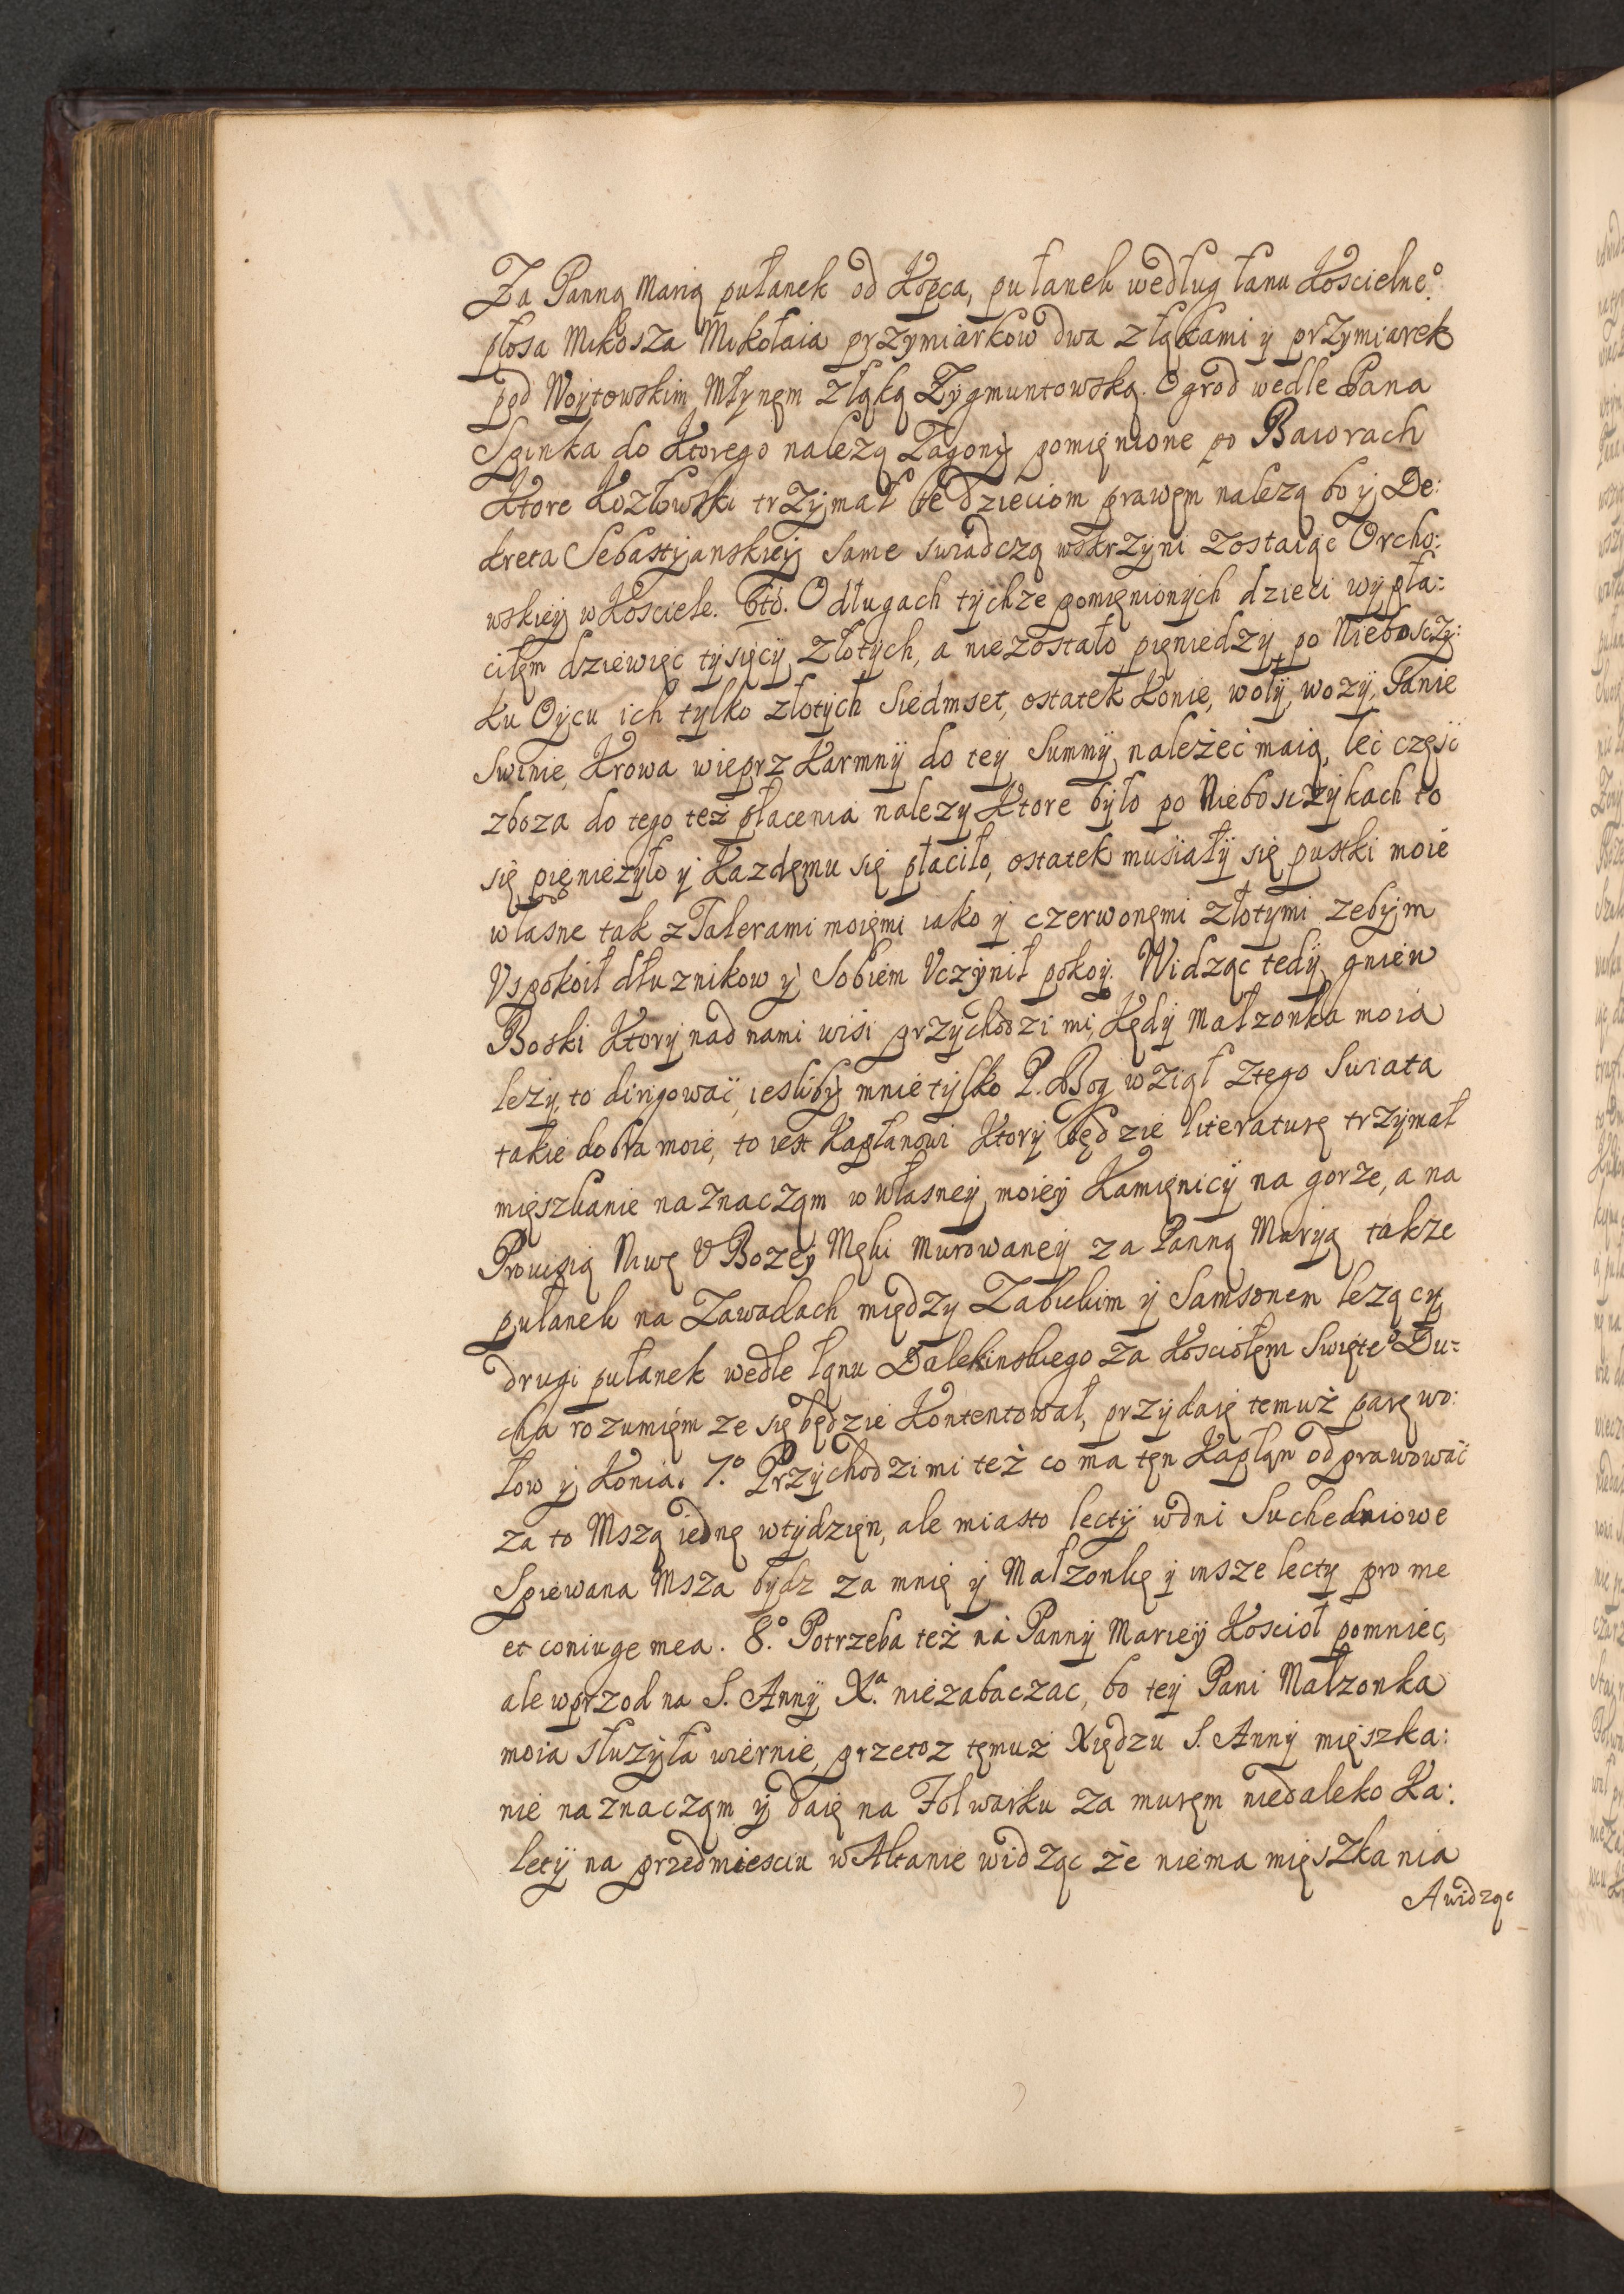 Za Panną Marią pułanek od Kopca, pułanek według łanu Koscielneº.
płosa Mikosza Mikołaia przymiarkow dwa z łąkami y przymiarek
pod Woytowskim Młynęm z łąką Zygmuntowską. Ogrod wedle Pana
Spinka do Ktorego nalezą Zagony pomięnione po Baiorach
Ktore Kozłowski trzymał te dzieciom prawęm nalezą bo y De:
kreta Sebastyanskiey Same swiadczą wskrzyni zostaiąc Orcho:
wskiey w Kosciele. 6tò. O długach tychze pomięnionych dzieci wypła:
ciłęm dziewięc tysięcy złotych, a niezostało pięniedzy po Niebosczy:
ku Oycu ich tylko złotych Siedmset, ostatek Konie, woły, wozy, Sanie
Swinie, Krowa wieprz Karmny do tey Summy należeć maią, leć częsc
zboza do tego też płacenia nalezy Ktore było po Niebosczykach to
się pięnieżyło y Kazdęmu się płaciło, ostatek musiały się pustki moie
własne tak z Talerami moięmi iako y czerwonęmi złotymi zebym
Uspokoił dłuznikow y Sobiem Uczynił pokoy. Widząc tedy gniew
Boski Ktory nad nami wisi przychodzi mi, Kędy Małzonka moia
leży, to dirigować, iesliby mnie tylko P. Bog wziął ztego Swiata
takie dobra moie, to iest Kapłanowi Ktory będzie literaturę trzymał
mięszkanie naznacząm w własney moiey Kamięnicy na gorze, a na
Prowizią Niwę U Bozey Męki Murowaney za Panną Maryą takze
pułanek na Zawadach między Zabickim y Samsonem lezący
drugi pułanek wedle łąnu Dalekinskiego za Kosciołęm Swięteº Du=
cha rozumięm ze się będzie Kontentował, przydaię temuż parę wo:
łow y Konia. 7.º Przychodzi mi też co ma tęn Kapłąn odprawować
za to Mszą iednę wtydzięn, ale miasto lecty wdni Suchedniowe
Spiewana Msza bydz za mnię y Małzonkę y insze lecty pro me
et coniuge mea. 8.º Potrzeba też nà Panny Mariey Koscioł pomniec,
ale wprzod na S. Anny Xª. niezabaczac, bo tey Pani Małzonka
moia słuzyła wiernie, przetoz tęmuż Xiędzu S. Anny mięszka:
nie naznacząm y daię na Folwarku za muręm niedaleko Ka:
lety na przedmiesciu w Altanie widząc że niema mięszkania
A widząc